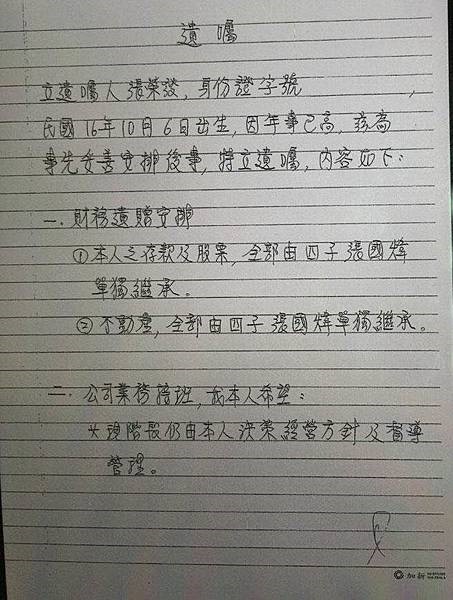 遺囑
立遺囑人張榮發,身份證字號 ,
民國16年10月6日出生,因年事已高,
事先妥善安排後事,特立遺囑,內容如下:
一.財務遺贈安排
①本人之存款及股票,全部由四子張國煒
單獨繼承。
②不動產,全部由四子張國煒單獨繼承。
二.公司業務接班,我本人希望:
大現階段仍由本人決策經營方針及督導
管理。
加新